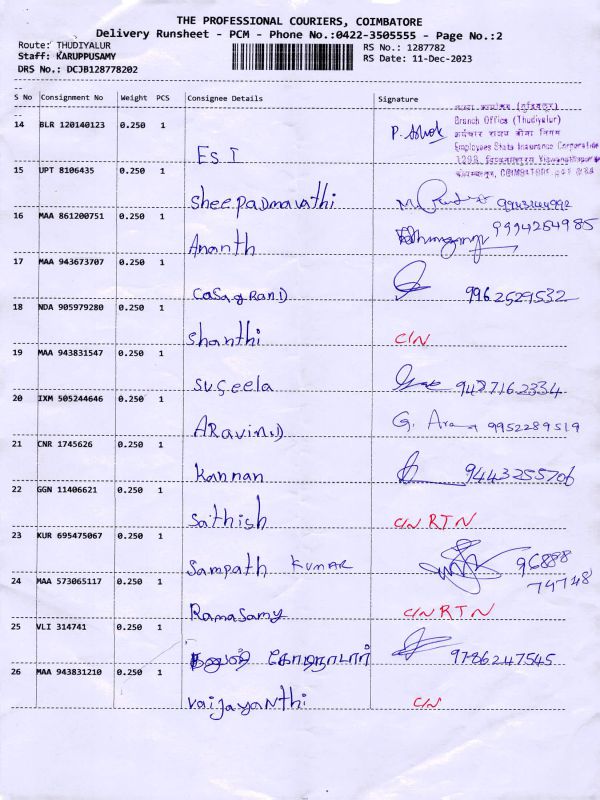 THE PROFESSIONAL COURIERS, COIMBATORE
Delivery Runsheet - PCM - Phone No.:0422-3505555 - Page No.:2
Route: THUDIYALUR RS No.: 1287782
Staff: KARUPPUSAMY RS Date: 11-Dec-2023
DRS No.: DCJB128778202
S No Consignment No Weight PCS Consignee Details Signature
Branch Office (Thudiyalur)
14 BLR 120140123 0.250 1 P. Ashok
Employees State Insurance Corporation
ESI
15 UPT 8106435 0.250 1
Shee Padmavathi
16 MAA 861200751 0.250 1 9994264985
Ananth
17 MAA 943673707 0.250 1
CasagranD 9962529532
18 NDA 905979280 0.250 1
Shanthi C/N
19 MAA 943831547 0.250 1
Suseela 9487162334
20 IXM 505244646 0.250 1
ARavinD G. 9952289519
21 CNR 1745626 0.250 1
Kannan 9443255706
22 GGN 11406621 0.250 1
Sathish C/N RTN
23 KUR 695475067 0.250 1
Sampath KUMAR 96888
74748
24 MAA 573065117 0.250 1
Ramasamy C/N RTN
25 VLI 314741 0.250 1
9786247545
26 MAA 943831210 0.250 1
Vaijayanthi C/N